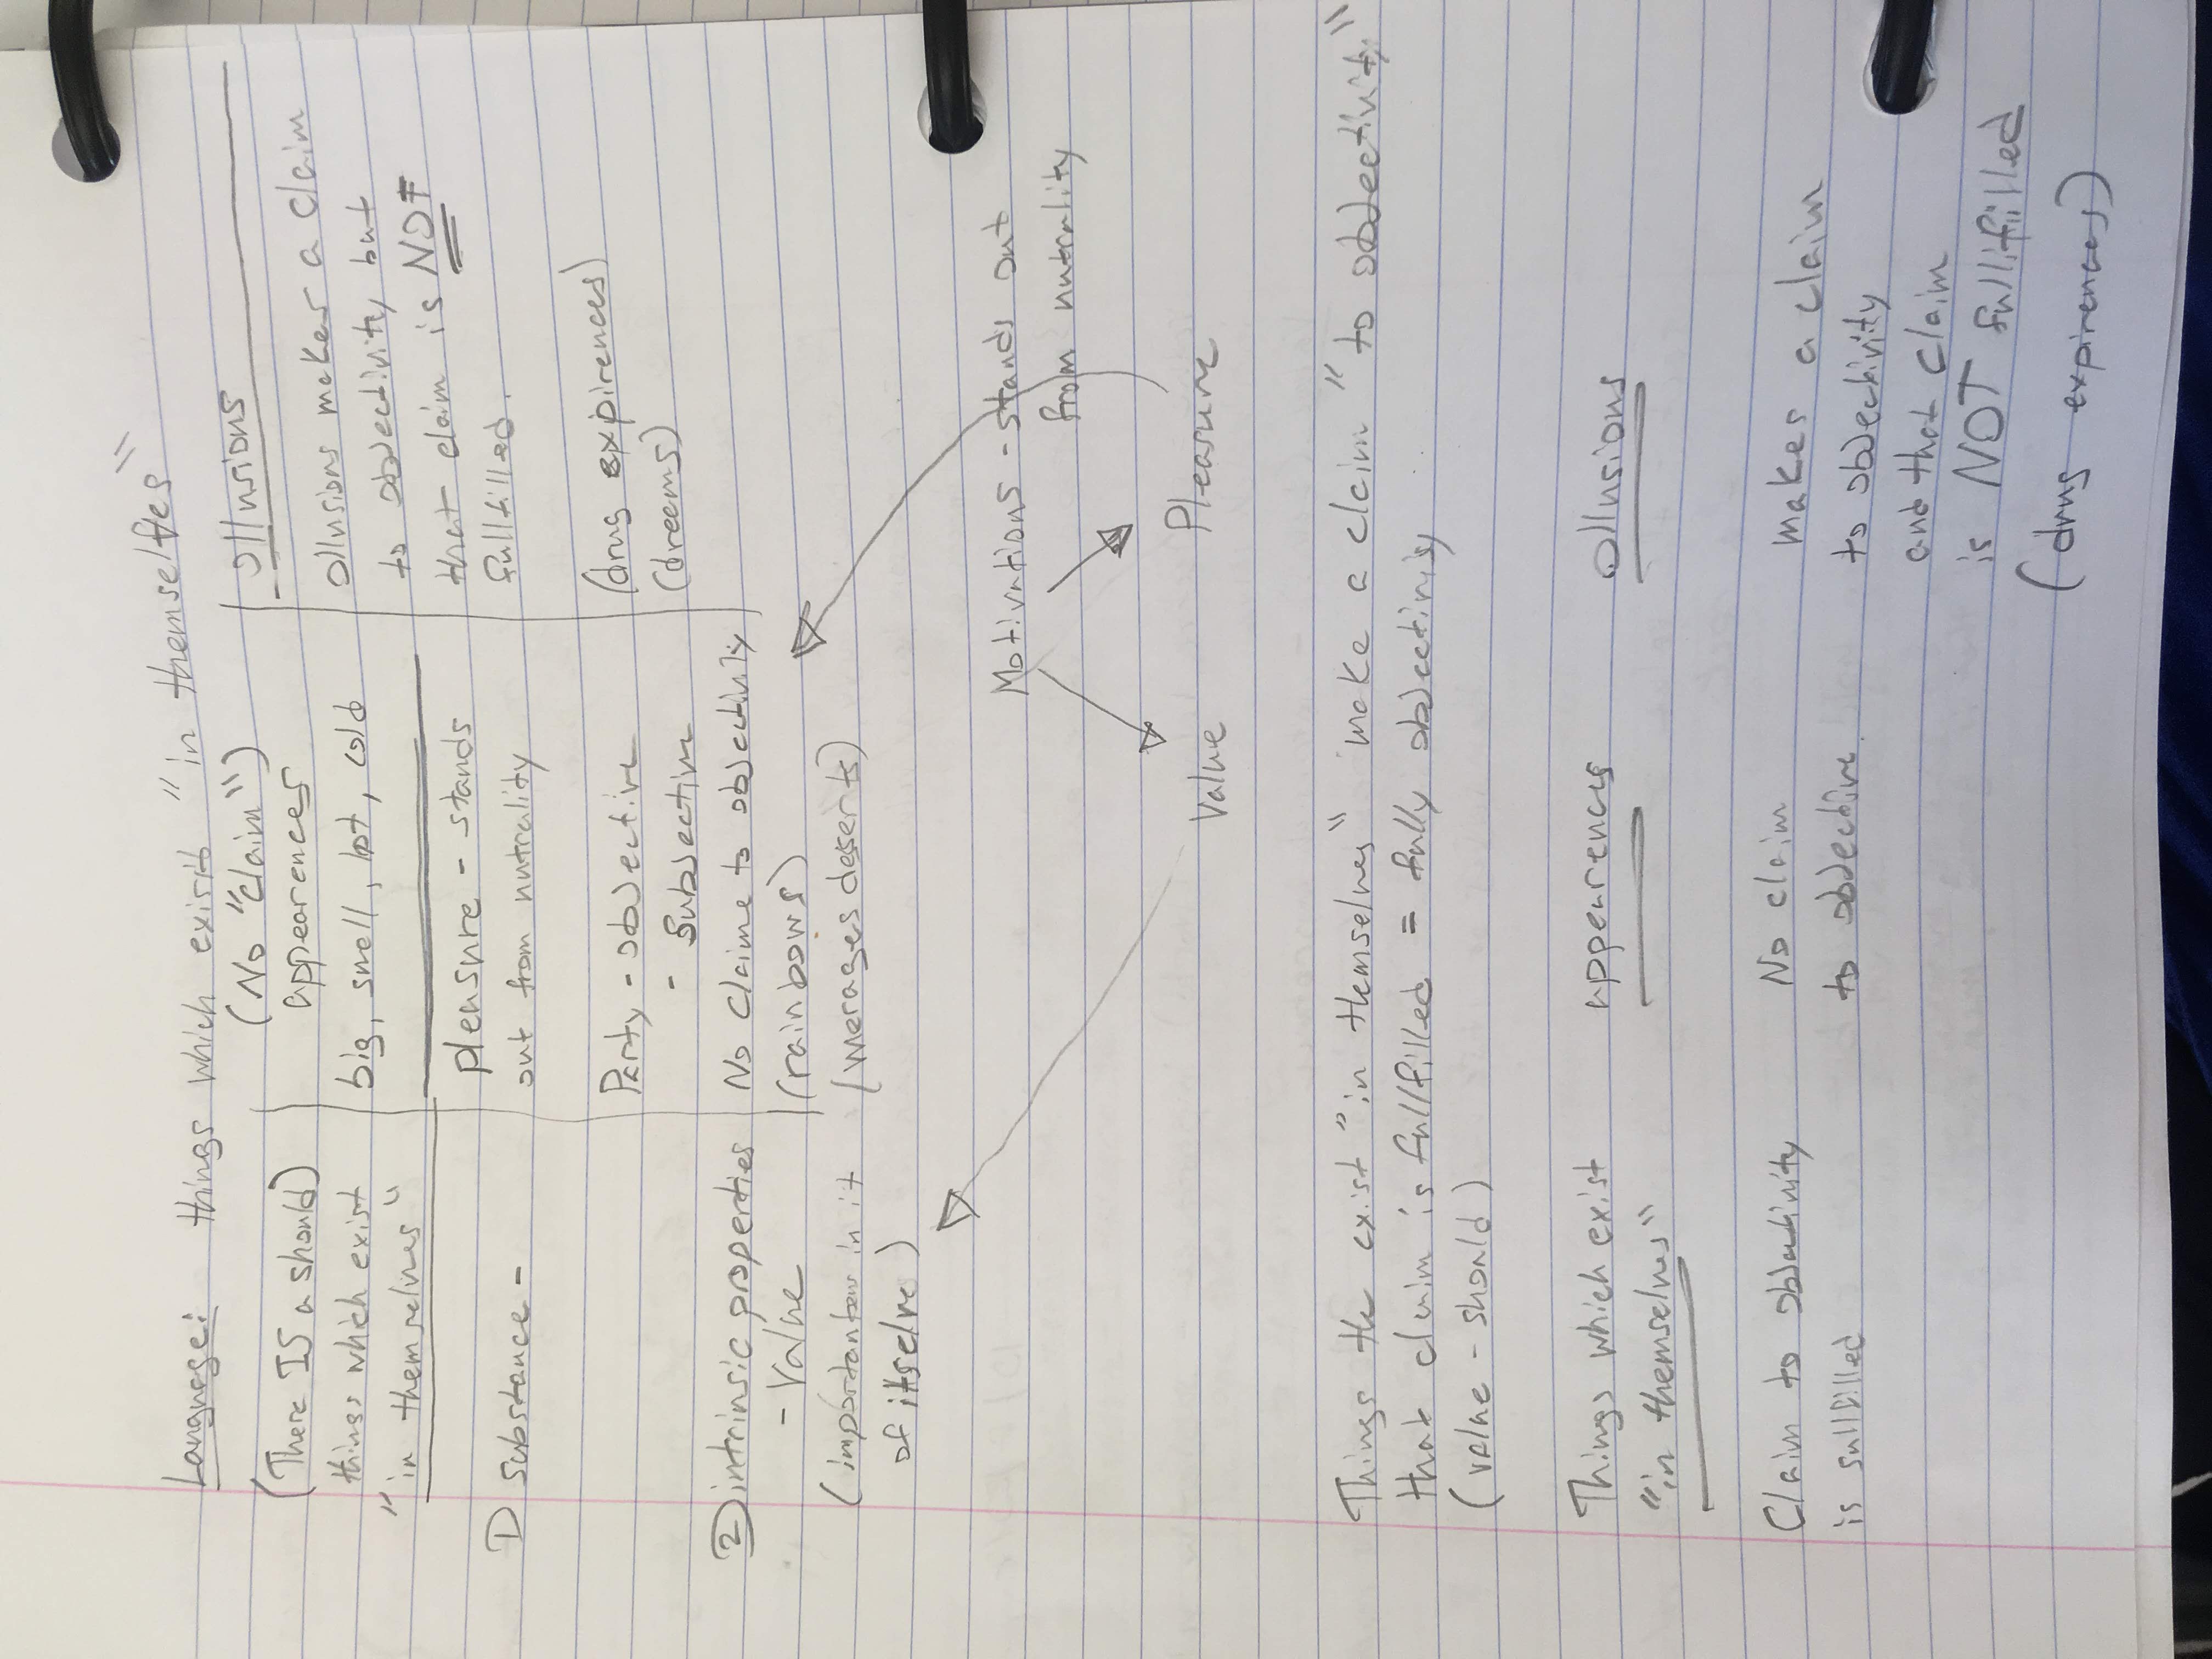 Language: things which exisit "in themselfes"
(There IS a should)
things which exist
"in themselves"
1) Substance -
2) intrinsic properties
- Value
(importantew in it
of itselve)
(No "claim")
appearences
big, smell, hot, cold
pleasure - stands
out from nutrality
Party - obJective
- SubJective
No claime to obJectivity
(rainbows)
(merages deserts)
ollusions
ollusions makes a claim
to obJectivity but
that claim is NOT
fullfilled.
(drug expirences)
(dreems)
Motivations - stands out
from nutrality
Value Pleasure
Things the exist "in themselves" make a claim "to obJectivity"
that claim is fullfilled = fully obJectivity
(value - should)
Things which exist
"in themselves"
Claim to obJectivity
is fullfilled
appearences
No claim
to obJective
ollusions
makes a claim
to obJectivity
and that claim
is NOT fullifilled
(drug expirences)